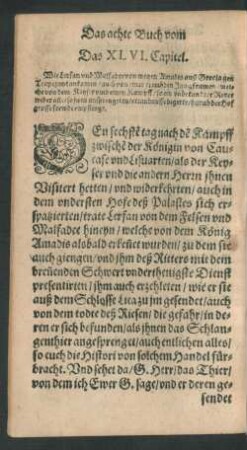 Das achte Buch vom
Das XLVI. Capitel.
Wie Lerfan vnd Malfadeo von wegen Amadis auß
den sechsten tag nach dē Kampff
zwischē der Königin von Cau-
case vnd Lisuarten/als der Key-
ser vnd die andern Herrn jhnen
Visitiert hetten/vnd widerkehrten/auch in
dem vndersten Hofe deß Palastes sich er-
spatzierten/tratē Lerfan von dem Felsen vnd
Malfadet hineyn/welche von dem König
Amadis alsbald erkeñet wurden/zu dem sie
auch giengen/vnd jhm deß Ritters mit dem
breñenden Schwert vnderthenigste Dienst
presentirten/jhm auch erzehleten/wie er sie
auß dem Schlosse Licaza jm gesendet/auch
von dem todte deß Riesen/die gefahr/in de-
ren er sich befunden/als jhnen das Schlan-
genthier angesprenget/auch entlichen alles/
so euch die Histori von solchem Handel für-
bracht. Vnd sehet da/G. Herr/das Thier/
von dem ich Ewer G. sage/vnd er deren ge-
sendet